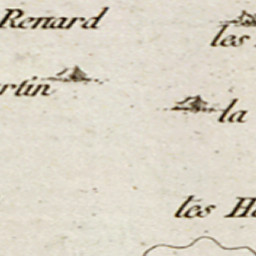 Renard
les
rtin
la
les H